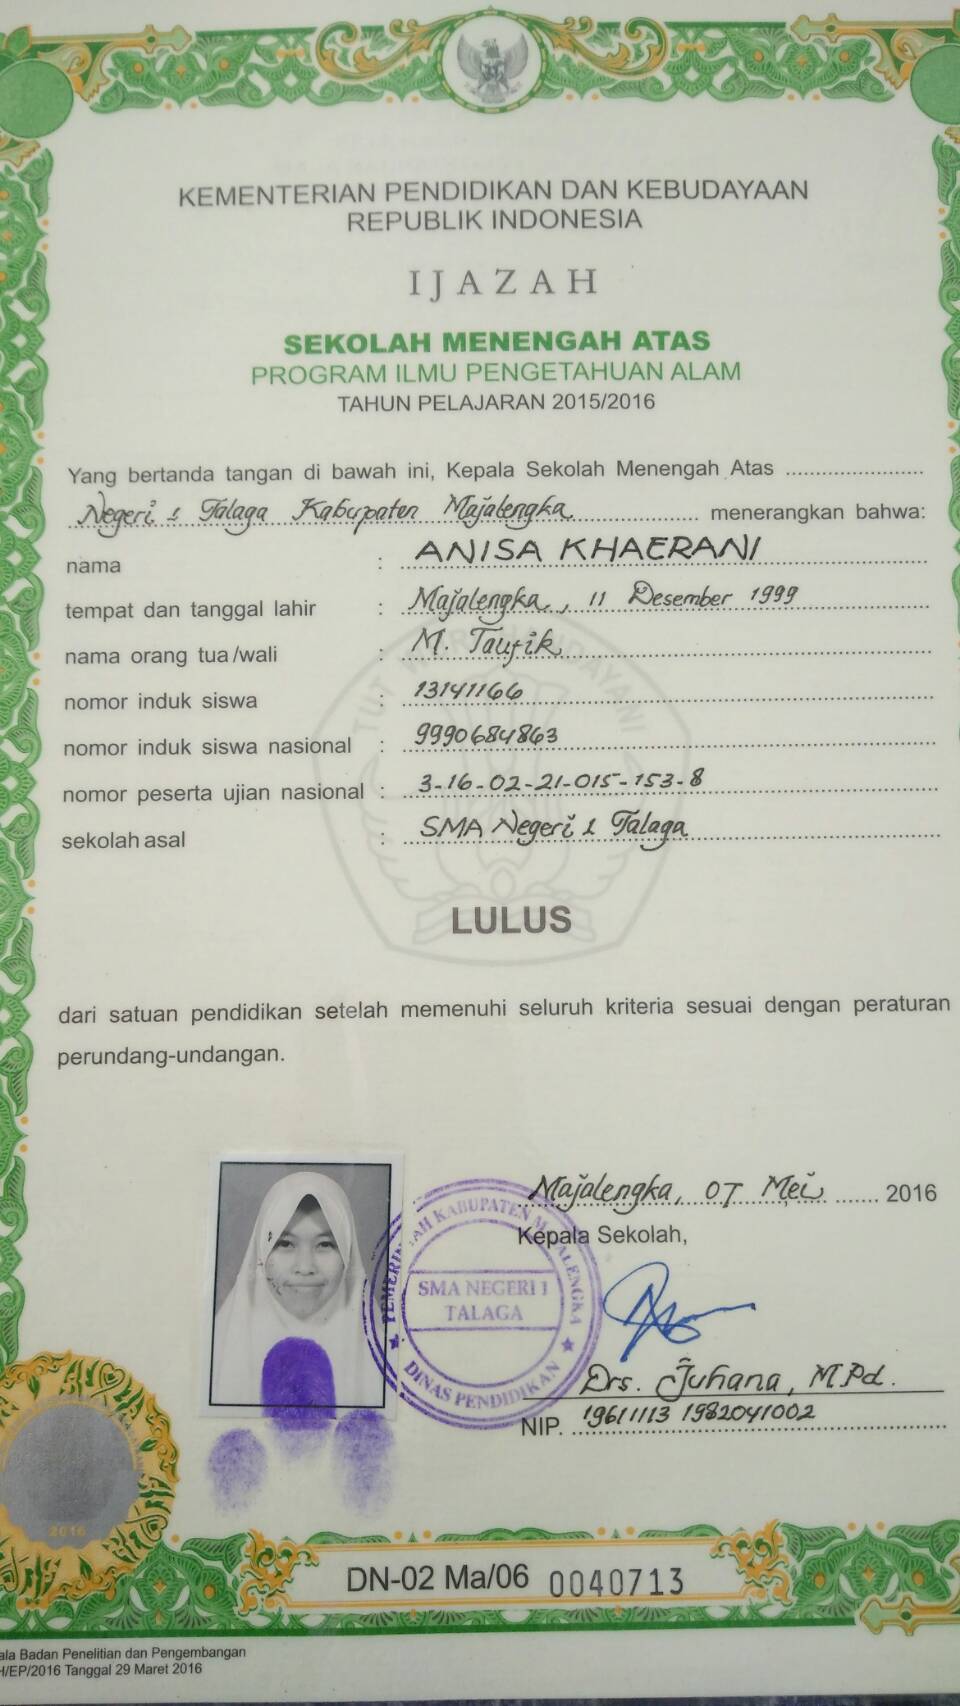 KEMENTERIAN PENDIDIKAN DAN KEBUDAYAAN
REPUBLIK INDONESIA
IJAZAH
SEKOLAH MENENGAH ATAS
PROGRAM ILMU PENGETAHUAN ALAM
TAHUN PELAJARAN 2015/2016
Yang bertanda tangan di bawah ini, Kepala Sekolah Menengah Atas ......................
Negeri 1 Talaga Kabupaten Majalengka menerangkan bahwa:
nama : ANISA KHAERANI
tempat dan tanggal lahir : Majalengka, 11 Desember 1999
nama orang tua/wali : M. Taufik
nomor induk siswa : 13141166
nomor induk siswa nasional : 9990684863
nomor peserta ujian nasional : 3-16-02-21-015-153-8
sekolah asal : SMA Negeri 1 Talaga
TUT WURI HANDAYANI
LULUS
dari satuan pendidikan setelah memenuhi seluruh kriteria sesuai dengan peraturan
perundang-undangan.
Majalengka, 07 Mei ...... 2016
Kepala Sekolah,
PEMERINTAH KABUPATEN MAJALENGKA
SMA NEGERI 1
TALAGA
DINAS PENDIDIKAN
Drs. Juhana, M.Pd.
NIP. 19611113 1982041002
2016
DN-02 Ma/06 0040713
ala Badan Penelitian dan Pengembangan
H/EP/2016 Tanggal 29 Maret 2016